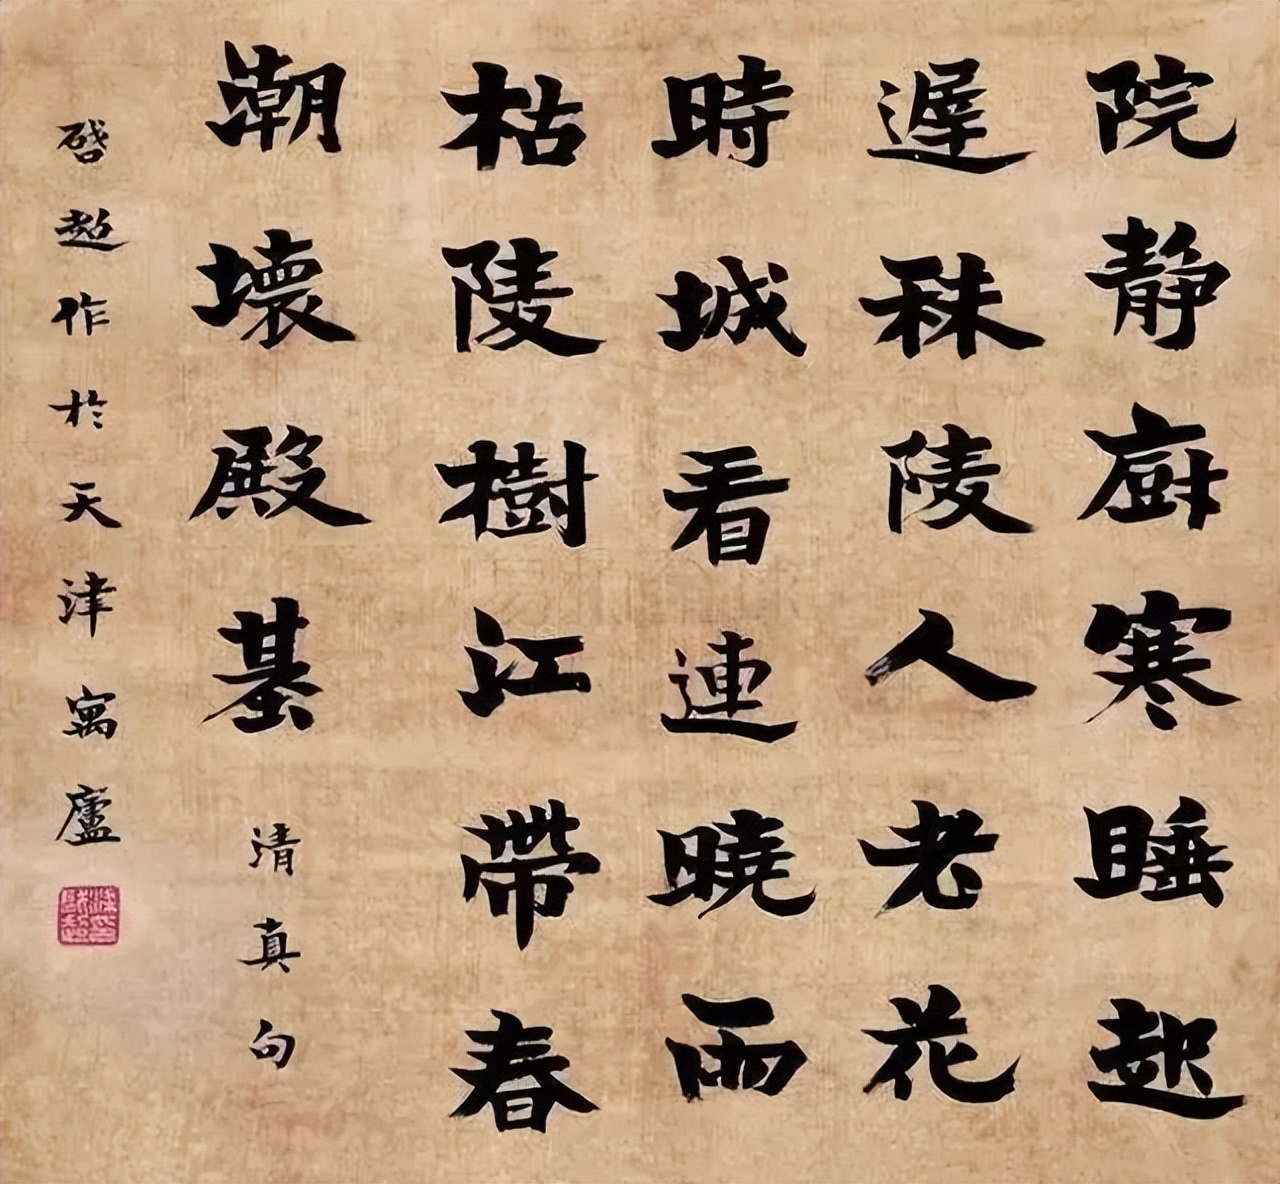 院静廚寒睡起
遲秣陵人老花
時城看連曉雨
枯陵樹江帶春
潮壞殿基
清真句
啓超作於天津寓廬